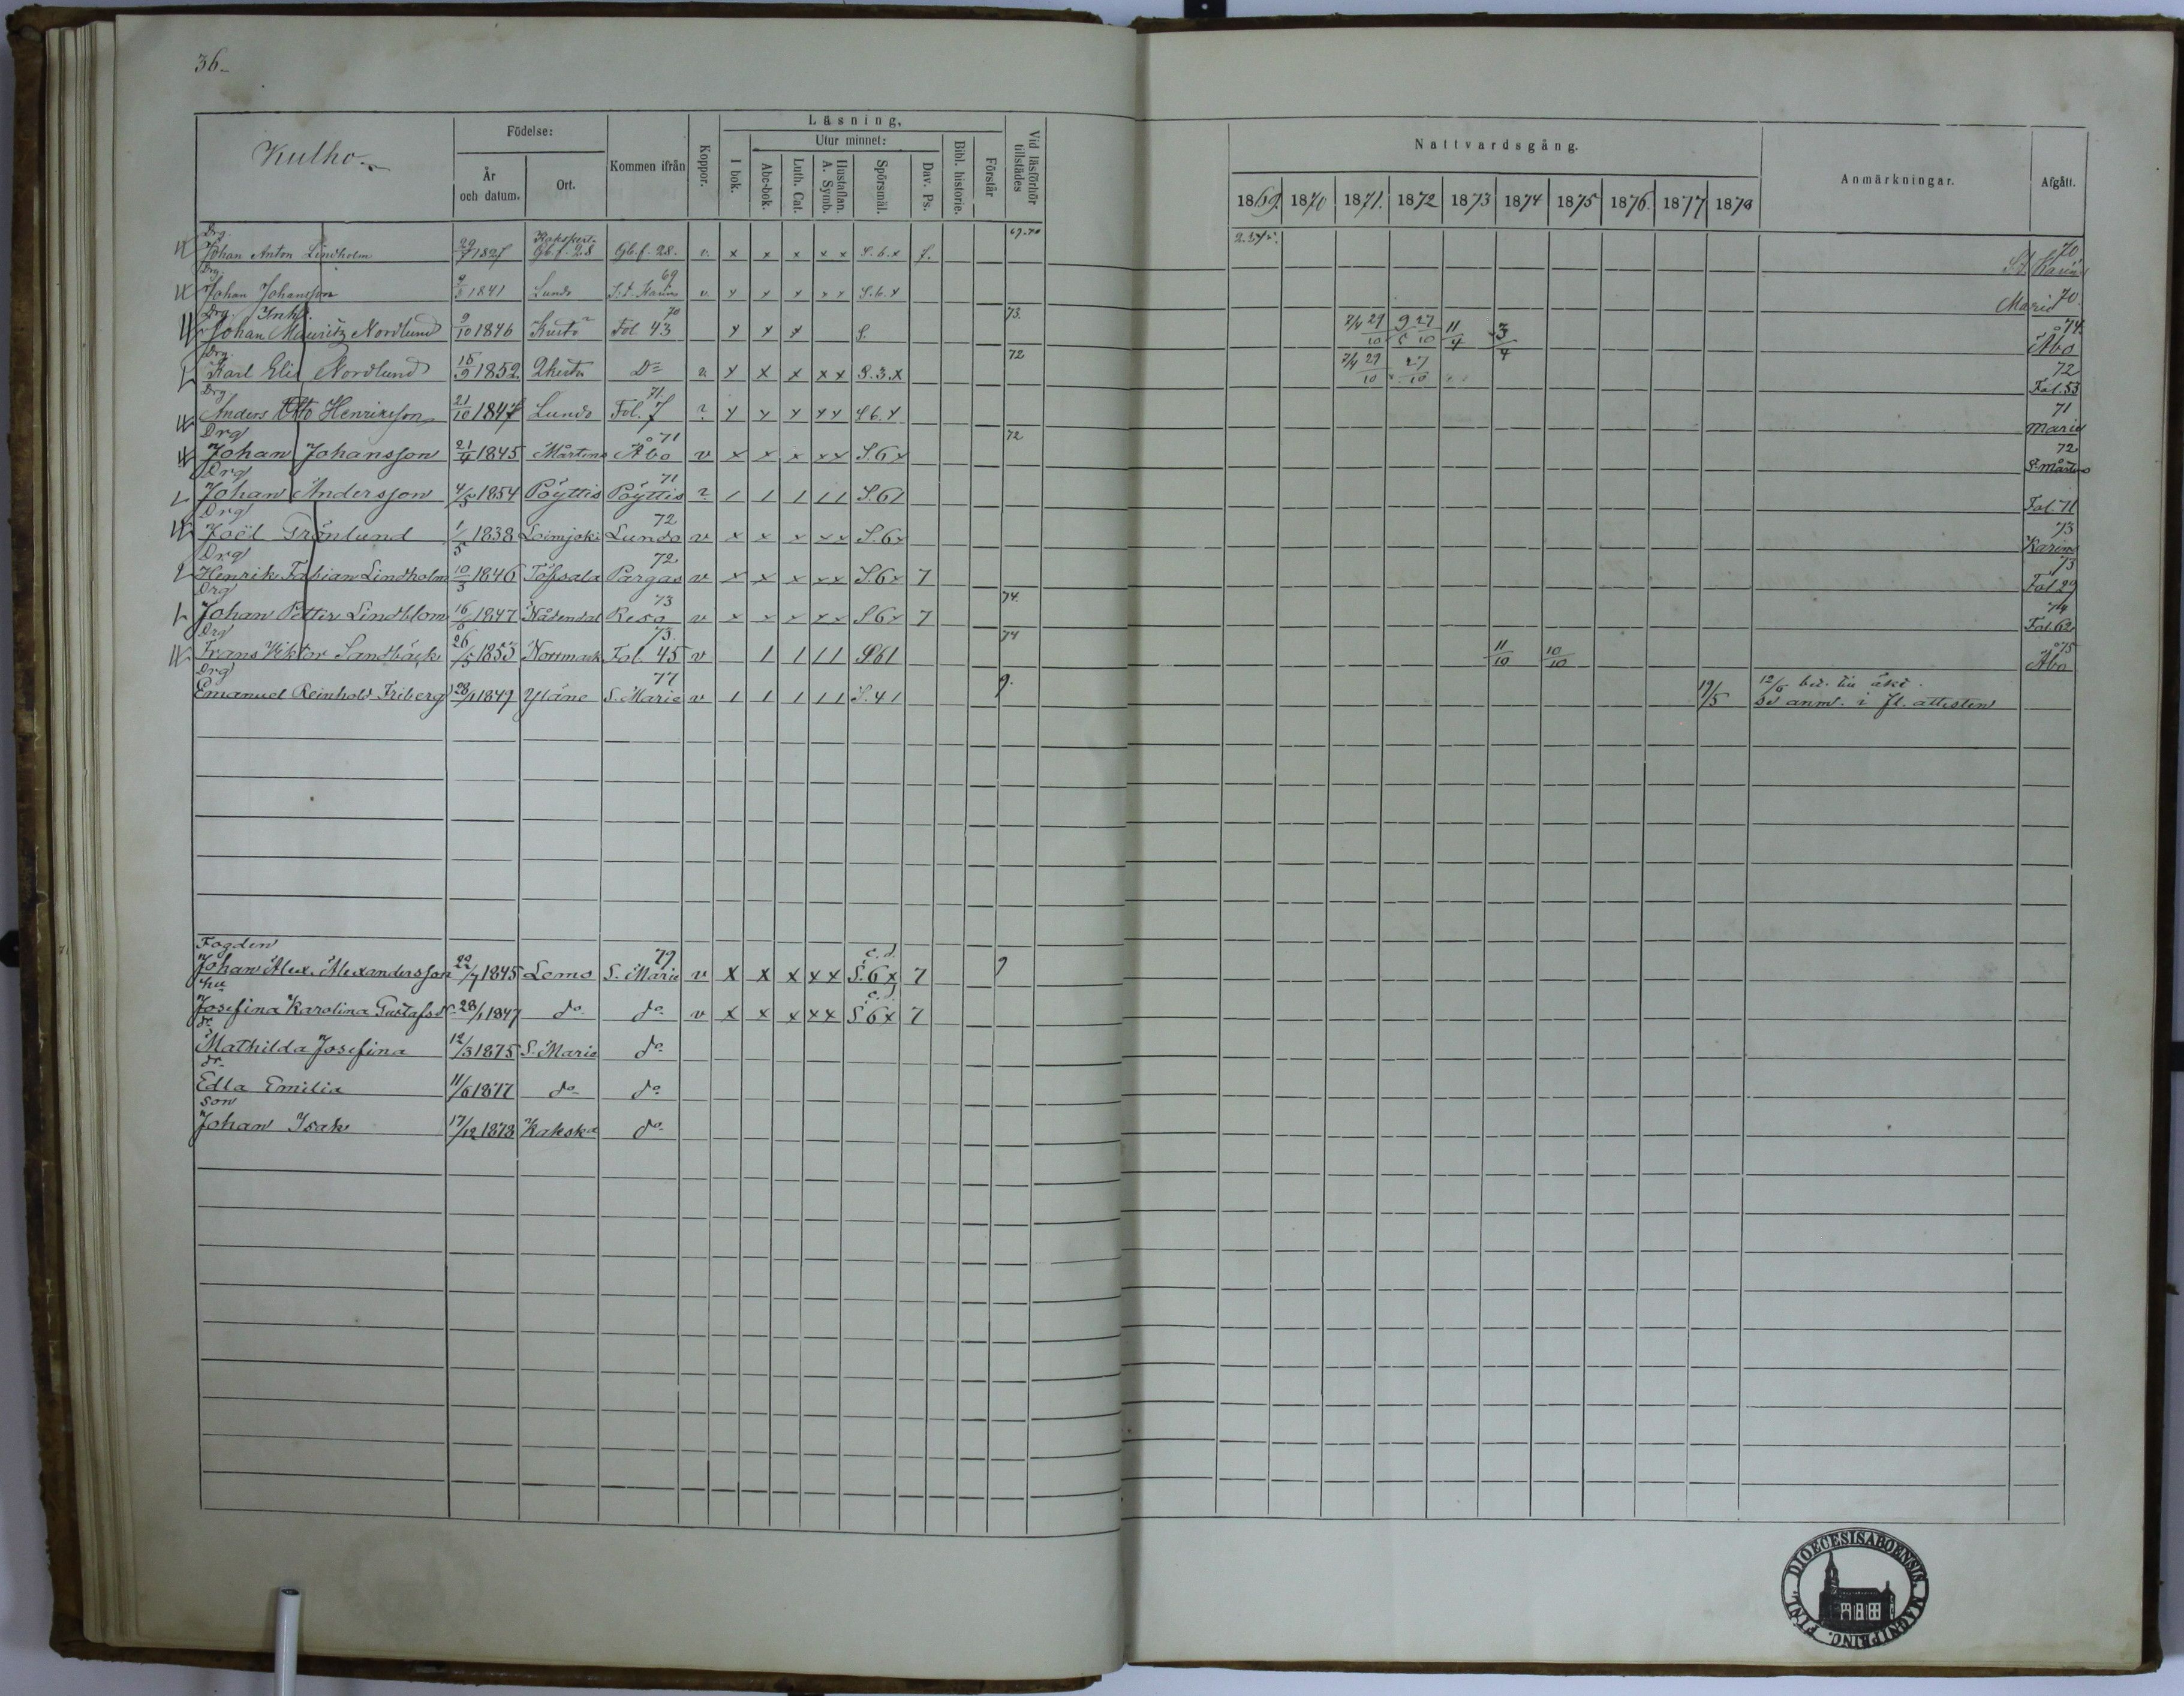 36.
Kulho
Födelse:
År och datum.
Ort.
Kommen ifrån
Koppor.
Läsning,
I bok.
Utur minnet:
Abc-bok.
Luth. Cat.
Hustaflan. A. Symb.
Spörsmål.
Dav. Ps.
Bibl. historie.
Förstår
Vid läsförhör tillstädes
Nattvardsgång.
1869. 1870 1871. 1872 1873 1874 1875 1876. 1877 1878
Anmärkningar.
Afgått.
Drg. 69.70 70
Johan Anton Lindholm 29/7 1827 Gb.f. 28 Gb.f. 28. v. x x x x x S. 6. x 7. St Karins
Drg. 69 70
Johan Johansson 1841 Lundo S:t Karins v. x x x x x S. 6. x Marie
Drg. Inh. 70 73. 74
Johan Mauritz Nordlund 9/10 1846 Kustö Fol 43 x x x S. 2/4 29/10 9/5 27/10 11/4 3/4 Åbo
Drg. 72 72
Karl Elis Nordlund 15/9 1852 Do v. x x x x x S. 3. x 2/4 29/10 27/10 Fol. 53
Drg 71. 71
Anders Otto Henriksson 21/10 1847 Lundo Fol. 7 ? x x x x x S 6. x Marie
Drg 71 72 72
Johan Johansson 21/4 1845 Mårtens Åbo v x x x x x S. 6 x S. Mårtens
Drg 71
Johan Andersson 4/5 1854 Pöyttis Pöyttis ? 1 1 1 1 1 S. 6 1 Fol. 71
Drg 72 73
Joël Grönlund 1/5 1838 Loimjoki Lundo v x x x x x S. 6 x Karins
Drg 72 73
Henrik Fabian Lindholm 10/3 1846 Töfsala Pargas v x x x x x S. 6 x 7 Fol 29
Drg 73 74. 74
Johan Petter Lindblom 16/6 1847 Nådendal Reso v x x x x x S 6 x 7 Fol. 62
Drg 73. 74 75
Frans Viktor Sandbäck 26/5 1853 Norrmark Fol. 45 v 1 1 1 1 S 6 1 11/10 10/10 Åbo
Drg 77 9. 12/5 bet. till äkt.
Emanuel Reinhold Friberg 28/1 1849 Yläne S. Marie v 1 1 1 1 1 S. 4 1 19/5 se anm. i fl. attesten
Fogden 79 c. d.
Johan Alex. Alexandersson 22/7 1845 Lemo S. Marie v x x x x x S. 6 x 7 9
hu c. d.
Josefina Karolina Gustafsdr. 28/1 1847 do do v x x x x x S 6 x 7
dr.
Mathilda Josefina 12/3 1875 S. Marie do
dr.
Edla Emilia 11/6 1877 do do
son
Johan Isak 17/12 1878 Kakska do
DIOECESIS ABOENSIS. MAGNI PRINC. FINL.